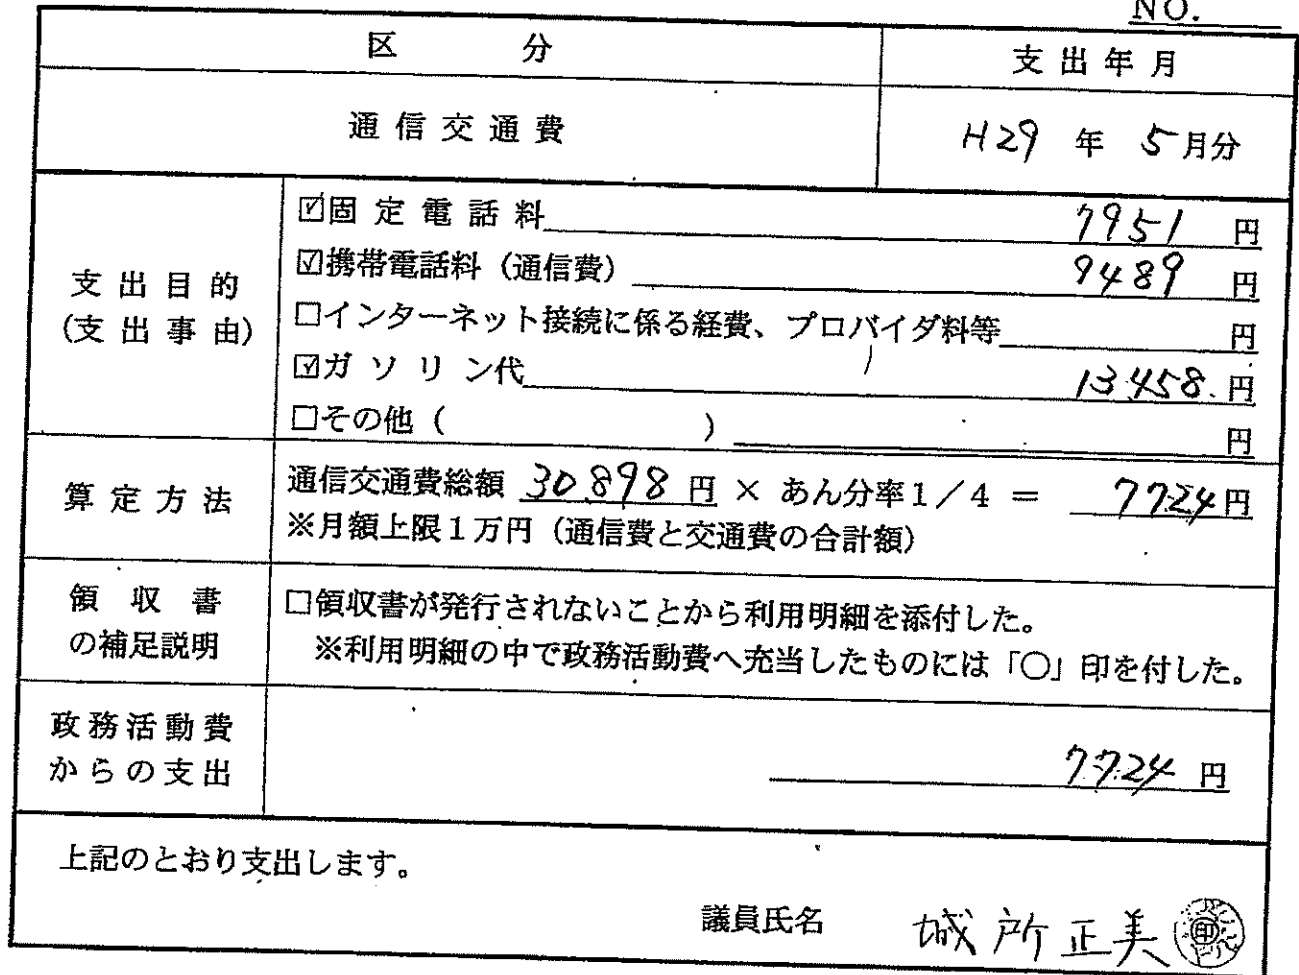 NO.
区 分
支出年月
通信交通費
H29 年 5月分
支出目的
(支出事由)
☑固定電話料 7951 円
☑携帯電話料（通信費） 9489 円
□インターネット接続に係る経費、プロバイダ料等 円
☑ガソリン代 13458 円
□その他（ ） 円
算定方法
通信交通費総額 30898 円 × あん分率1／4 ＝ 7724円
※月額上限1万円（通信費と交通費の合計額）
領収書
の補足説明
□領収書が発行されないことから利用明細を添付した。
※利用明細の中で政務活動費へ充当したものには「○」印を付した。
政務活動費
からの支出
7724 円
上記のとおり支出します。
議員氏名 城所正美 印